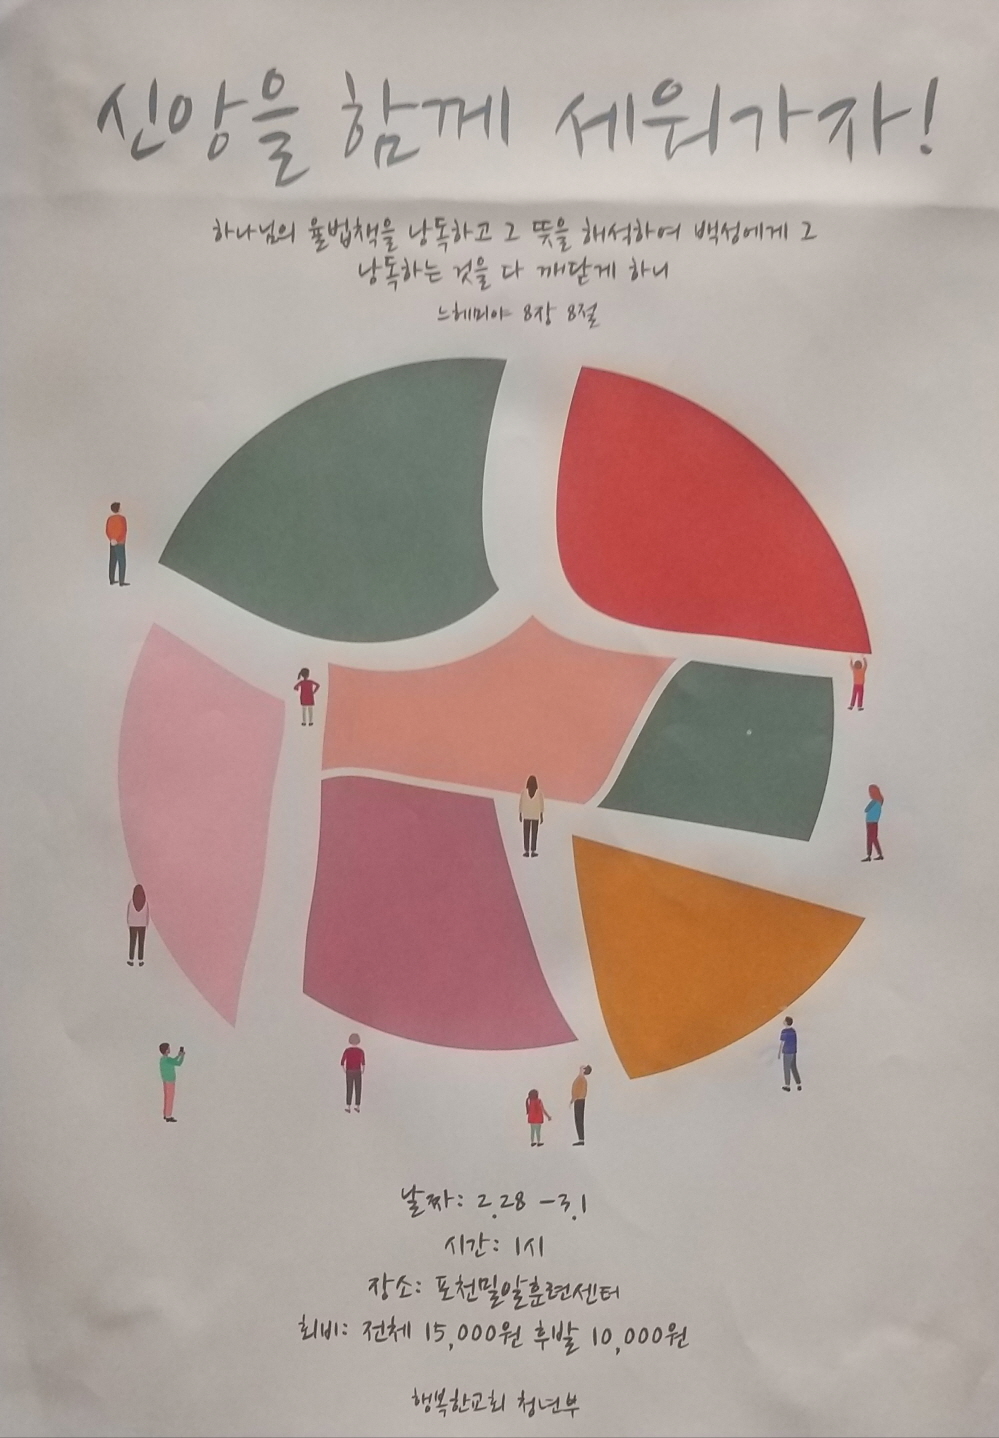 신앙을 함께 세워가자!
하나님의 율법책을 낭독하고 그 뜻을 해석하여 백성에게 그
낭독하는 것을 다 깨닫게 하니
느헤미야 8장 8절
날짜: 2.28 -3.1
시간: 1시
장소: 포천밀알훈련센터
회비: 전체 15,000원 후발 10,000원
행복한교회 청년부